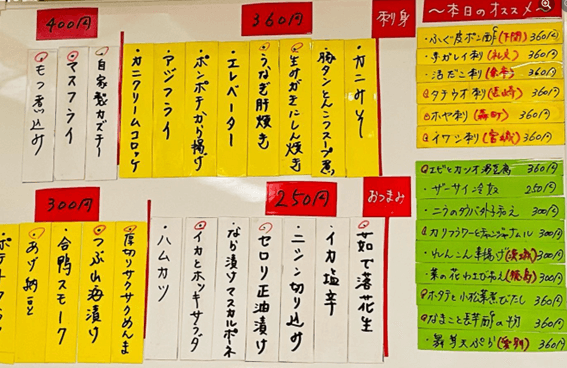 400円
360円
刺身
〜本日のオススメ〜
自家製カズチー
マスフライ
もつ煮込み
カニみそ
豚タンとんこつスープ煮
生みがきにしん焼き
うなぎ肝焼き
エレベーター
ポンポテから揚げ
アジフライ
カニクリームコロッケ
ふぐ皮ポン酢(下関) 360円
平ガレイ刺 360円
活だこ刺 360円
タチウオ刺(尼崎) 360円
ホヤ刺(森町) 360円
イワシ刺(宮城) 360円
300円
250円
おつまみ
厚切りサクサクめんま
つぶ山海漬け
合鴨スモーク
あげ納豆
ポテトサラダ
茹で落花生
イカ塩辛
ニシン切り込み
セロリ正油漬け
なら漬けマスカルポーネ
イカとホッキサラダ
ハムカツ
エビとカツオ 360円
ザーサイ冷奴 250円
ニラのタバ外子和え 300円
カリフラワーとチャンジャナムル 300円
れんこん辛揚げ(茨城) 300円
菜の花わさび和え(徳島) 300円
ホタテと小松菜煮びたし 360円
なまこと 360円
舞茸天ぷら(愛別) 300円